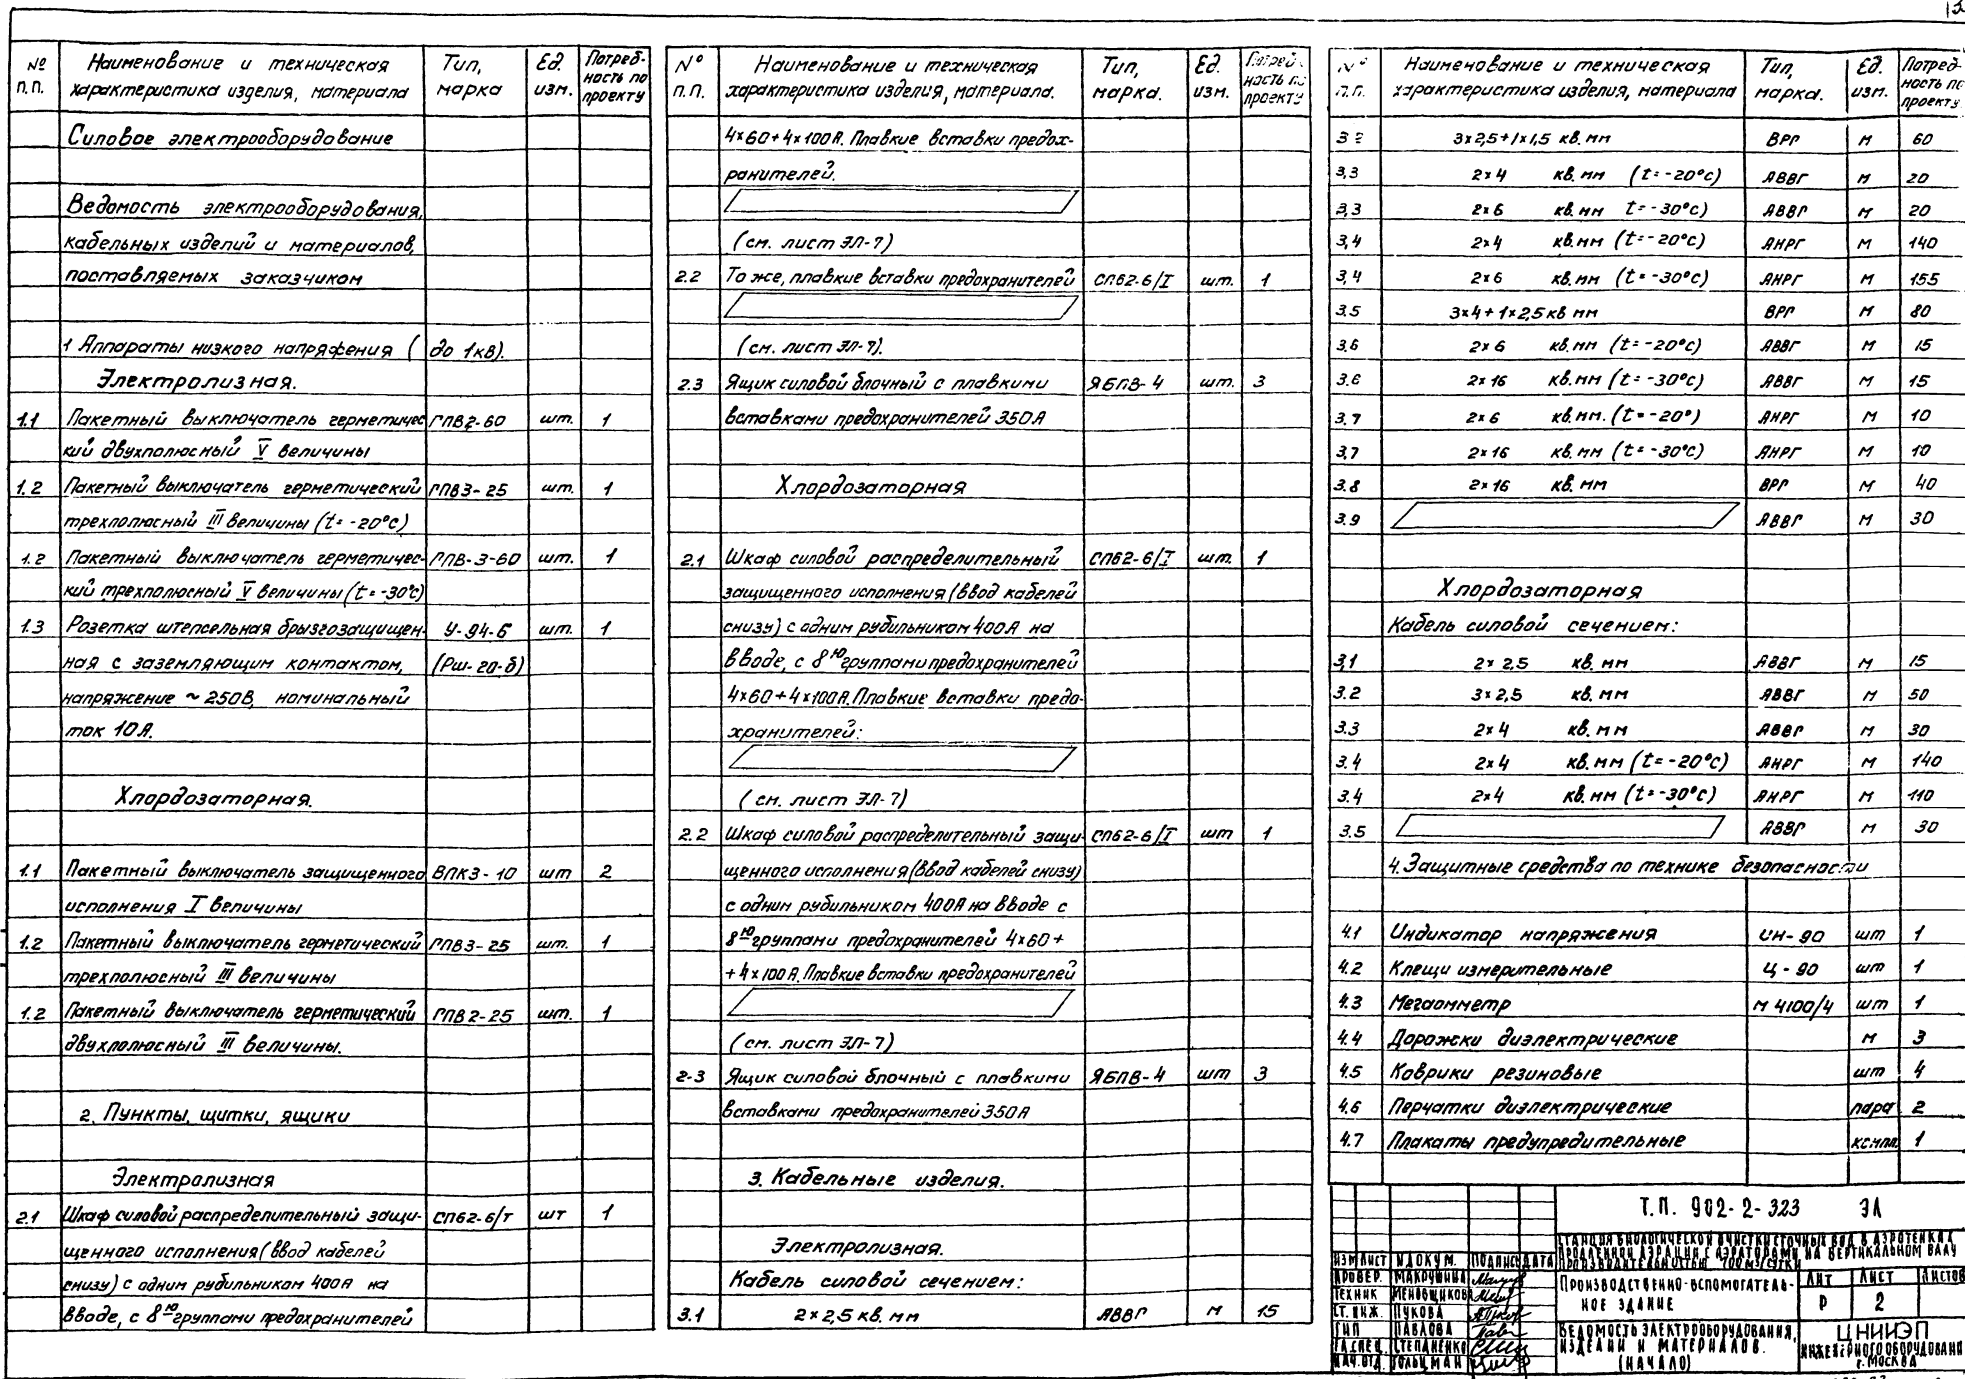 № п.п. Наименование и техническая характеристика изделия, материала Тип, марка Ед. изм. Потребность по проекту
Силовое электрооборудование
Ведомость электрооборудования,
кабельных изделий и материалов,
поставляемых заказчиком
1 Аппараты низкого напряжения (до 1кВ).
Электролизная.
1.1 Пакетный выключатель герметичес ГПВ2-60 шт. 1
кий двухполюсный V величины
1.2 Пакетный выключатель герметический ГПВ3-25 шт. 1
трехполюсный III величины (t=-20°С)
1.2 Пакетный выключатель герметичес- ГПВ-3-60 шт. 1
кий трехполюсный V величины (t=-30°С)
1.3 Розетка штепсельная брызгозащищен- У-94-б шт. 1
ная с заземляющим контактом, (Рш-20-б)
напряжение ~250В, номинальный
ток 10А.
Хлордозаторная.
1.1 Пакетный выключатель защищенного ВПК3-10 шт 2
исполнения I величины
1.2 Пакетный выключатель герметический ГПВ3-25 шт. 1
трехполюсный III величины
1.2 Пакетный выключатель герметический ГПВ2-25 шт. 1
двухполюсный III величины.
2. Пункты, щитки, ящики
Электролизная
2.1 Шкаф силовой распределительный защи- СП62-6/т шт 1
щенного исполнения (ввод кабелей
снизу) с одним рубильником 400А на
вводе, с 8ю группами предохранителей
N° п.п. Наименование и техническая характеристика изделия, материала. Тип, марка. Ед. изм. Потребность по проекту
4×60+4×100А. Плавкие вставки предох-
ранителей.
(см. лист ЭЛ-7)
2.2 То же, плавкие вставки предохранителей СП62-6/I шт. 1
(см. лист ЭЛ-7).
2.3 Ящик силовой блочный с плавкими ЯБПВ-4 шт. 3
вставками предохранителей 350А
Хлордозаторная
2.1 Шкаф силовой распределительный СП62-6/I шт. 1
защищенного исполнения (ввод кабелей
снизу) с одним рубильником 400А на
вводе, с 8ю группами предохранителей
4×60+4×100А. Плавкие вставки предо-
хранителей:
(см. лист ЭЛ-7)
2.2 Шкаф силовой распределительный защи- СП62-6/I шт 1
щенного исполнения (ввод кабелей снизу)
с одним рубильником 400А на вводе с
8ю группами предохранителей 4×60+
+4×100А. Плавкие вставки предохранителей
(см. лист ЭЛ-7)
2-3 Ящик силовой блочный с плавкими ЯБПВ-4 шт 3
вставками предохранителей 350А
3. Кабельные изделия.
Электролизная.
Кабель силовой сечением:
3.1 2×2,5 кв. мм АВВГ м 15
N° п.п. Наименование и техническая характеристика изделия, материала Тип, марка. Ед. изм. Потребность по проекту
3.2 3×2,5+1×1,5 кв. мм ВРГ м 60
3,3 2×4 кв. мм (t=-20°С) АВВГ м 20
3,3 2×6 кв. мм t=-30°С) АВВГ м 20
3,4 2×4 кв. мм (t=-20°С) АНРГ м 140
3,4 2×6 кв. мм (t=-30°С) АНРГ м 155
3.5 3×4+1×2,5 кв мм ВРГ м 80
3.6 2×6 кв. мм (t=-20°С) АВВГ м 15
3.6 2×16 кв. мм (t=-30°С) АВВГ м 15
3.7 2×6 кв. мм. (t=-20°) АНРГ м 10
3,7 2×16 кв. мм (t=-30°С) АНРГ м 10
3.8 2×16 кв. мм ВРГ м 40
3.9 АВВГ м 30
Хлордозаторная
Кабель силовой сечением:
3,1 2×2,5 кв. мм АВВГ м 15
3.2 3×2,5 кв. мм АВВГ м 50
3.3 2×4 кв. мм АВВГ м 30
3.4 2×4 кв. мм (t=-20°С) АНРГ м 140
3.4 2×4 кв. мм (t=-30°С) АНРГ м 110
3.5 АВВГ м 30
4. Защитные средства по технике безопасности
4.1 Индикатор напряжения шт 1
4.2 Клещи измерительные Ц-90 шт 1
4.3 Мегаомметр М4100/4 шт 1
4.4 Дорожки диэлектрические м 3
4.5 Коврики резиновые шт 4
4.6 Перчатки диэлектрические пара 2
4.7 Плакаты предупредительные компл. 1
Т.П. 902-2-323 ЭЛ
Станция биологической очистки сточных вод в аэротенках
продленной аэрации с аэраторами на вертикальном валу
производительностью 700 м3/сутки
Изм Лист N докум. Подпись Дата
Провер. Макрушина
Техник Меновщикова
Ст. инж. Пукова
ГИП Павлова
Гл.спец. Степаненко
Нач.отд. Гольцман
Производственно-вспомогатель-
ное здание
Лит Лист Листов
Р 2
Ведомость электрооборудования,
изделий и материалов.
(начало)
ЦНИИЭП
инженерного оборудования
г. Москва